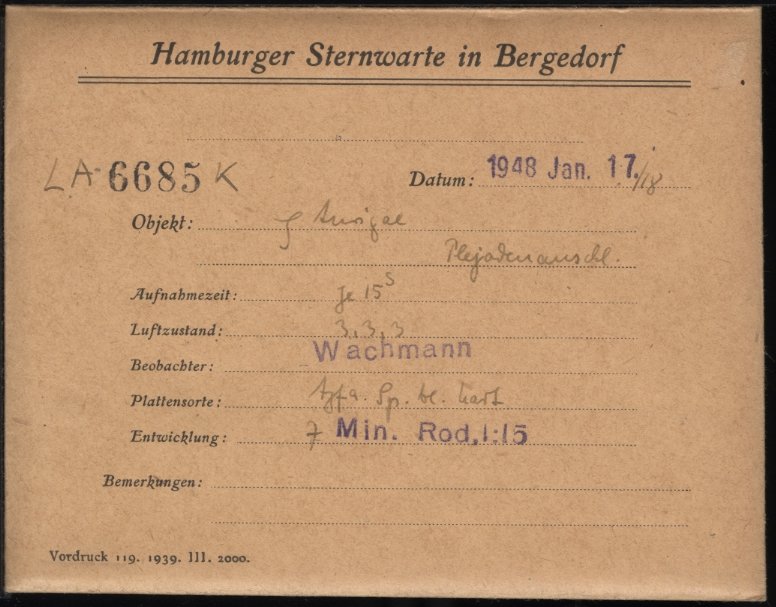 Hamburger Sternwarte in Bergedorf
LA 6685 K
Datum: 1948 Jan. 17./18
Objekt: ζ Aurigae
Plejadenanschl.
Aufnahmezeit: Je 15s
Luftzustand: 3, 3, 3
Beobachter: Wachmann
Plattensorte: Agfa Sp. bl. hart
Entwicklung: 7 Min. Rod. 1:15
Bemerkungen:
Vordruck 119. 1939. III. 2000.